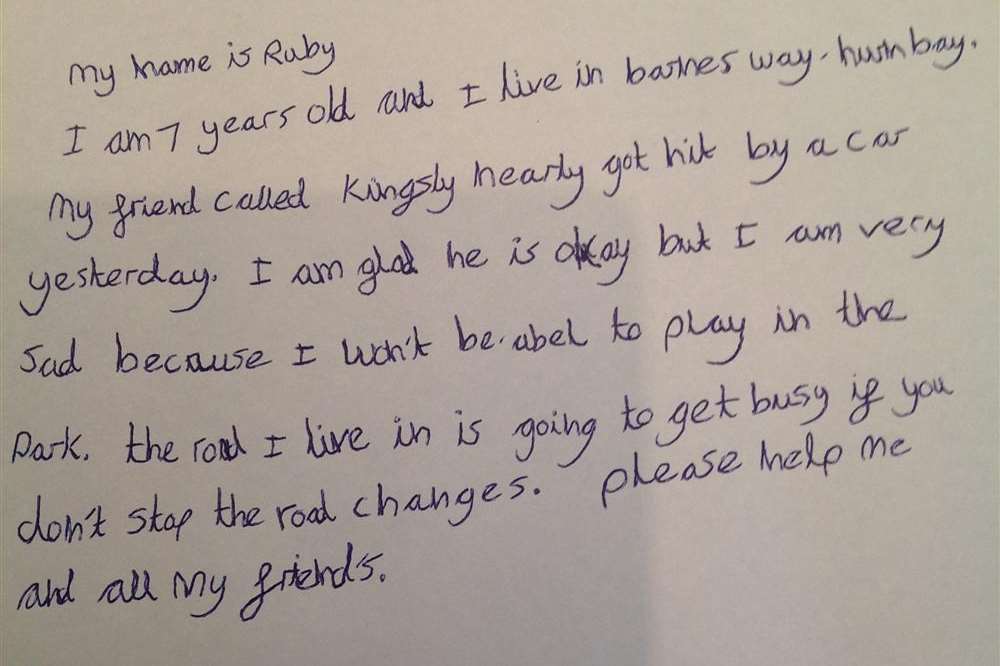 My name is Ruby
I am 7 years old and I live in barnes way. hurn bay.
My friend called Kingsly nearly got hit by a car
yesterday. I am glad he is okay but I am very
sad because I won't be.abel to play in the
Park. the road I live in is going to get busy if you
don't stop the road changes. please help me
and all my friends.